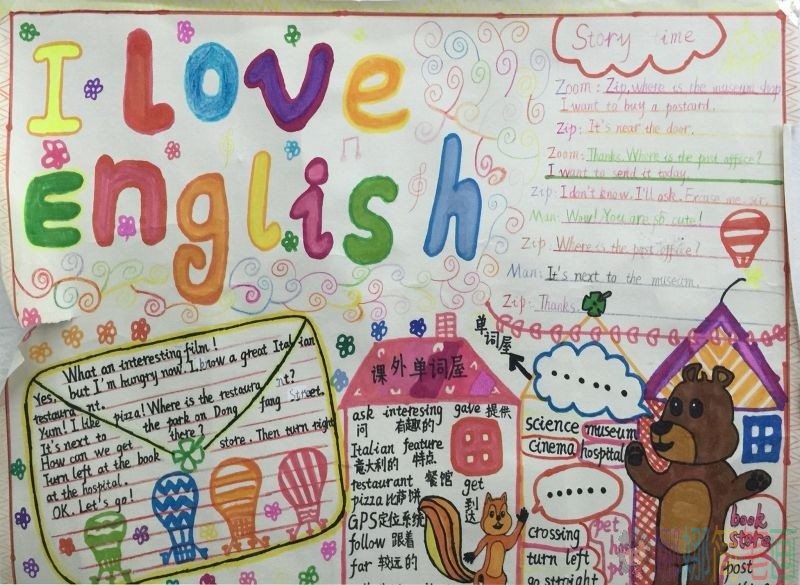 I Love
English
Story time
Zoom: Zip, where is the museum shop
I want to buy a postcard.
Zip: It's near the door.
Zoom: Thanks. Where is the post offsice?
I want to send it today.
Zip: I don't know. I'll ask. Excuse me, sir.
Man: Wow! You are so cute!
Zip: Where is the post office?
Man: It's next to the museum.
Zip: Thanks.
What an interesting film!
Yes, but I'm hungry now. I know a great Italian
restaurant.
Yum! I like pizza! Where is the restaurant?
It's next to the park on Dong fang Street.
How can we get there?
Turn left at the book store. Then turn right
at the hospital.
OK. Let's go!
课外单词屋
ask interesing gave 提供
问 有趣的
Italian feature
意大利的 特点
restaurant 餐馆
pizza 比萨饼 get
到达
GPS定位系统
follow 跟着
far 较远的
单词屋
science museum
cinema hospital
crossing
turn left
go straight
pet
book
store
post